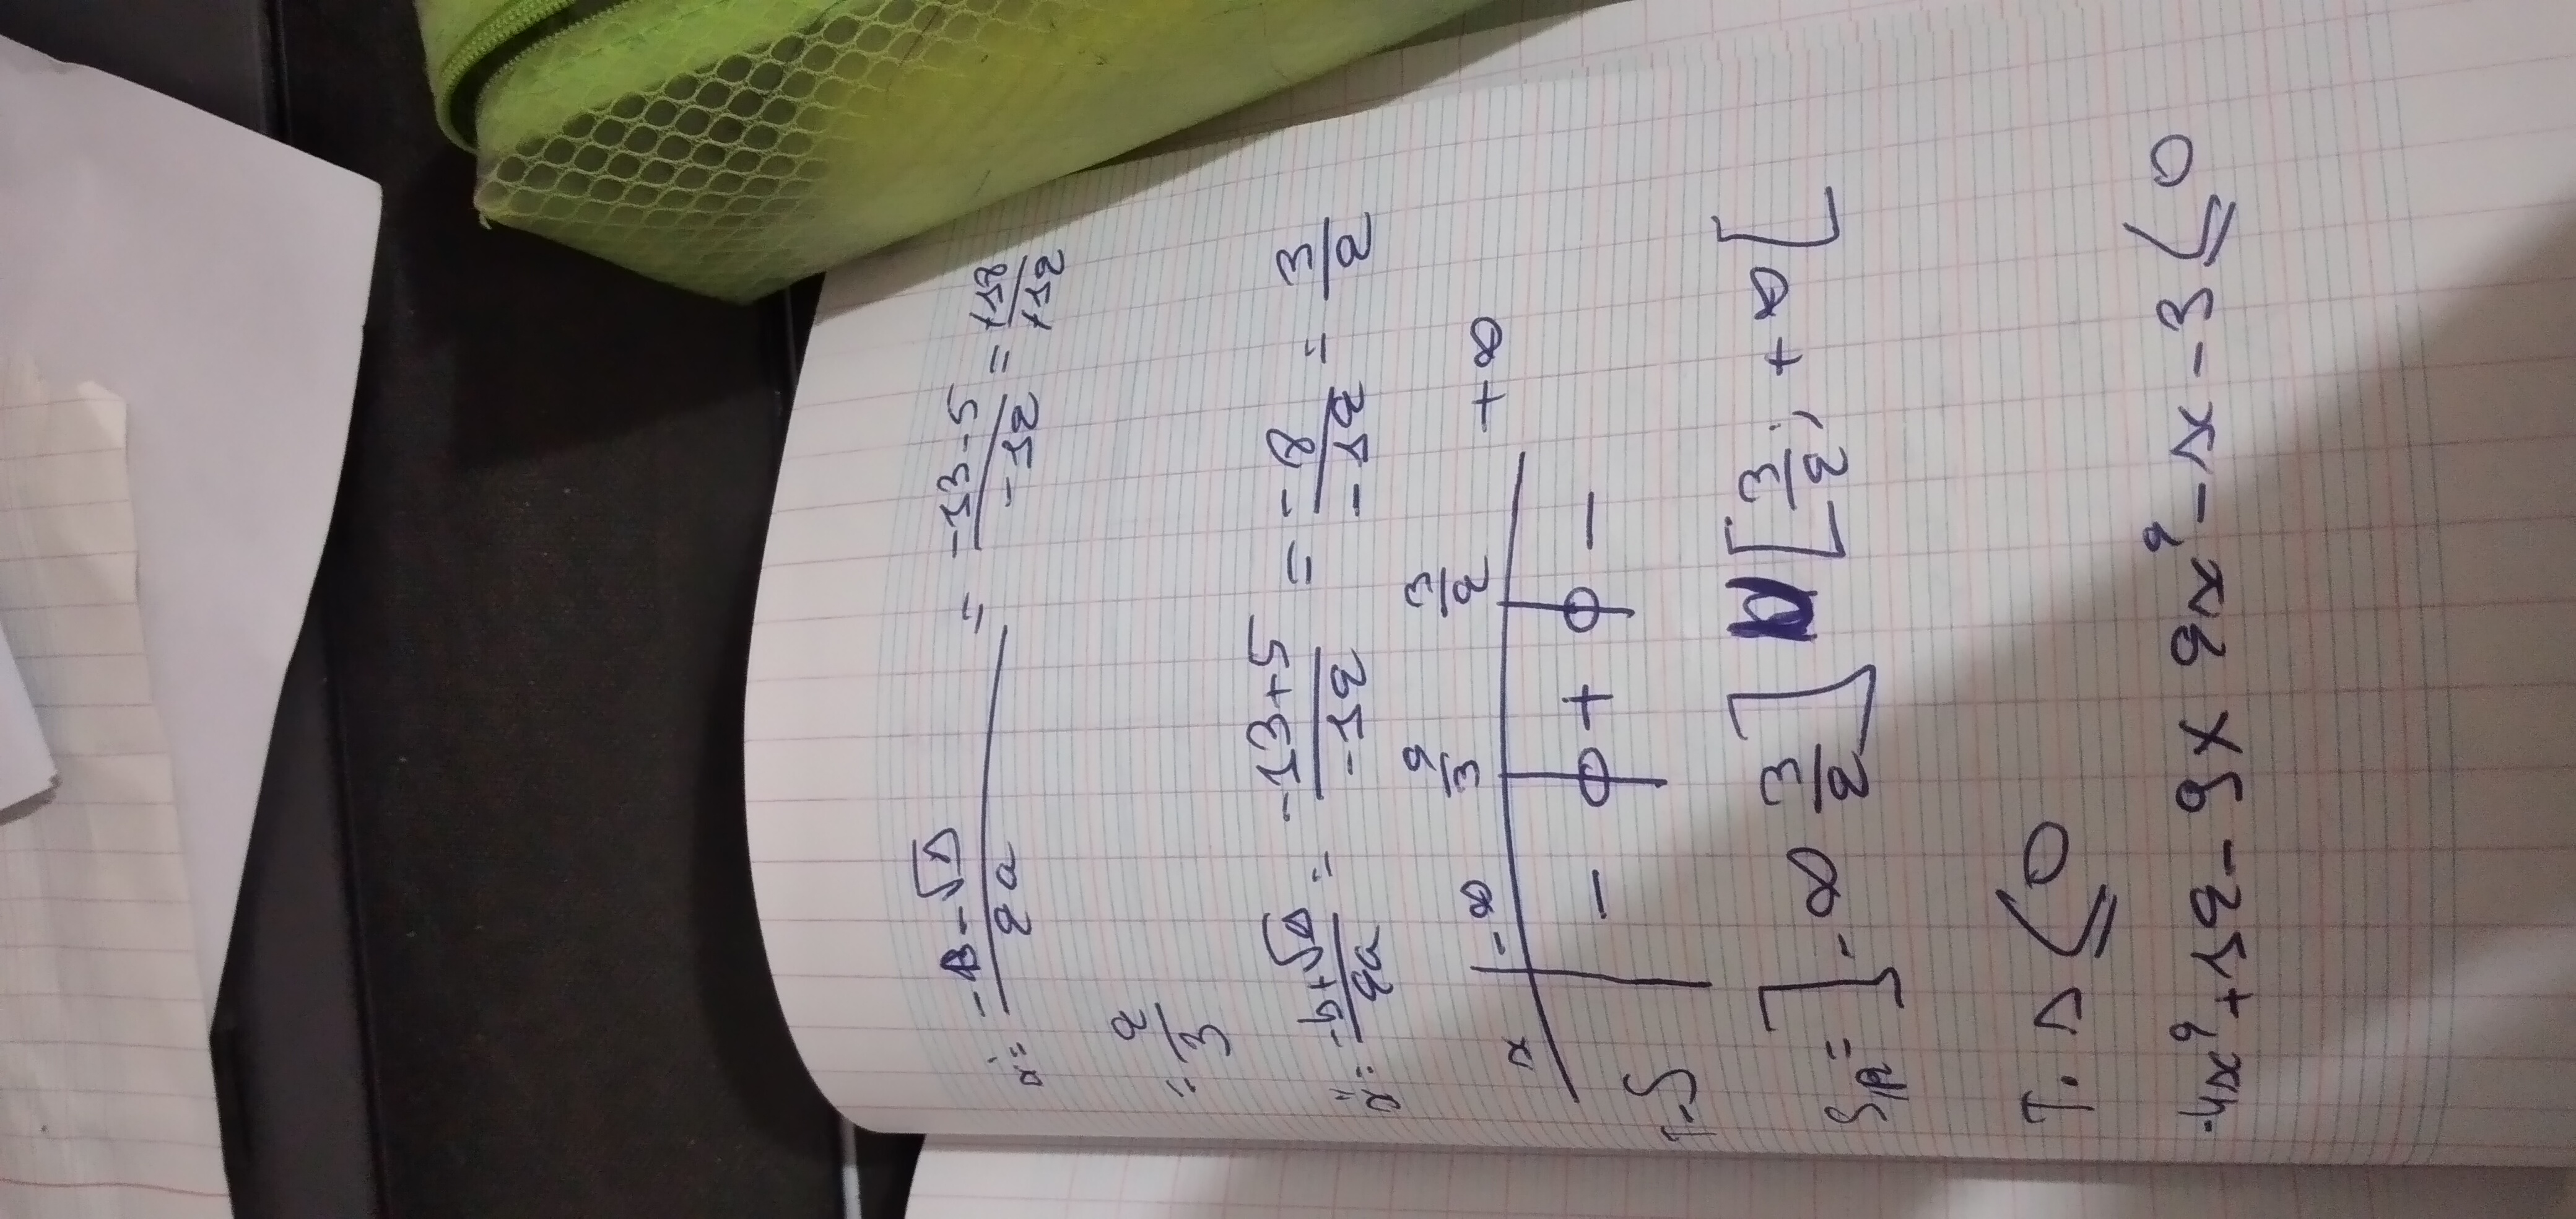 x' = (-B-√Δ)/2a = (-13-5)/-12 = +18/+12
= 2/3
x'' = (-b+√Δ)/2a = (-13+5)/-12 = -8/-12 = 3/2
x -∞ 2/3 3/2 +∞
T.S - 0 + 0 -
S_IR = ]-∞ 3/2] U [3/2; +∞[
T. Δ ≤ 0
-4x²+12-9x 2x²-1x-3 ≤ 0